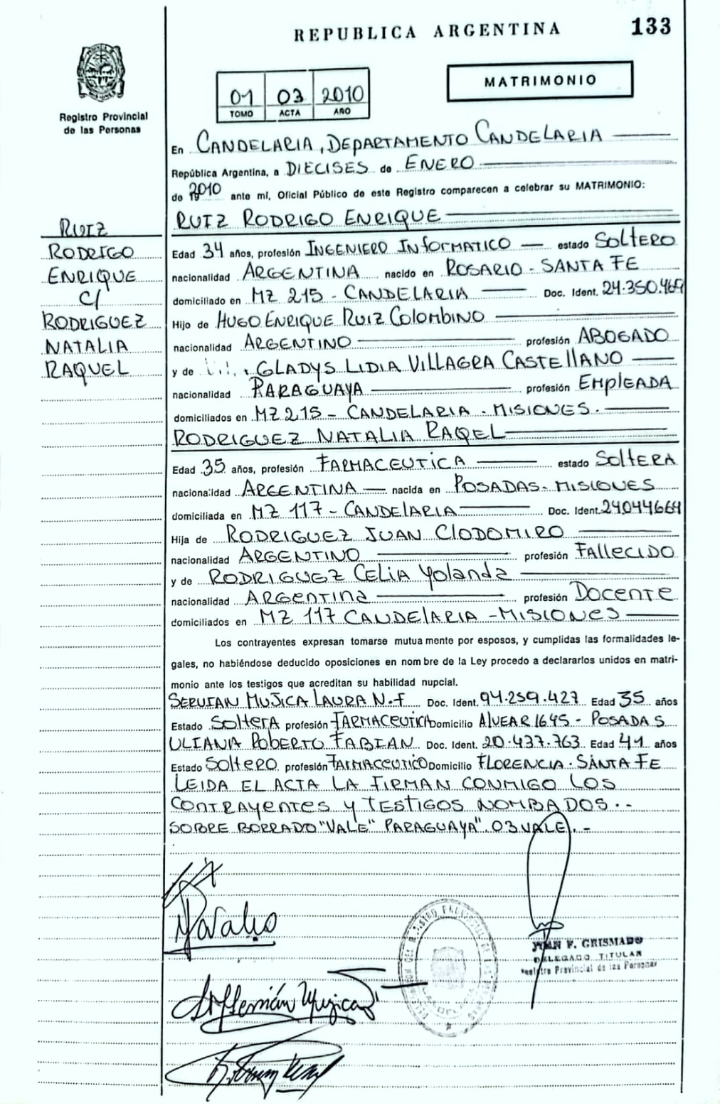 REPUBLICA ARGENTINA 133
Registro Provincial
de las Personas
01 03 2010
TOMO ACTA AÑO
MATRIMONIO
En CANDELARIA, DEPARTAMENTO CANDELARIA
República Argentina, a DIECISES de ENERO
de 2010 ante mí, Oficial Público de este Registro comparecen a celebrar su MATRIMONIO:
RUIZ
RODRIGO
ENRIQUE
C/
RODRIGUEZ
NATALIA
RAQUEL
RUIZ RODRIGO ENRIQUE
Edad 34 años, profesión INGENIERO INFORMATICO estado SOLTERO
nacionalidad ARGENTINA nacido en ROSARIO - SANTA FE
domiciliado en MZ 215 - CANDELARIA Doc. Ident. 24.350.469
Hijo de HUGO ENRIQUE RUIZ COLOMBINO
nacionalidad ARGENTINO profesión ABOGADO
y de GLADYS LIDIA VILLAGRA CASTELLANO
nacionalidad PARAGUAYA profesión EMPLEADA
domiciliados en MZ 215 - CANDELARIA - MISIONES.
RODRIGUEZ NATALIA RAQEL
Edad 35 años, profesión FARMACEUTICA estado SOLTERA
nacionalidad ARGENTINA nacida en POSADAS - MISIONES
domiciliada en MZ 117 - CANDELARIA Doc. Ident. 24044664
Hija de RODRIGUEZ JUAN CLODOMIRO
nacionalidad ARGENTINO profesión FALLECIDO
y de RODRIGUEZ CELIA Yolanda
nacionalidad ARGENTINA profesión DOCENTE
domiciliados en MZ 117 CANDELARIA - MISIONES
Los contrayentes expresan tomarse mutuamente por esposos, y cumplidas las formalidades le-
gales, no habiéndose deducido oposiciones en nombre de la Ley procedo a declararlos unidos en matri-
monio ante los testigos que acreditan su habilidad nupcial.
MUJICA LAURA N.F Doc. Ident. 94.259.427 Edad 35 años
Estado SOLTERA profesión FARMACEUTICA Domicilio ALVEAR 1645 - POSADAS
ULIANA ROBERTO FABIAN Doc. Ident. 20.437.763 Edad 41 años
Estado SOLTERO profesión FARMACEUTICO Domicilio FLORENCIA - SANTA FE
LEIDA EL ACTA LA FIRMAN CONMIGO LOS
CONTRAYENTES Y TESTIGOS NOMBADOS.-
SOBRE BORRADO "VALE" PARAGUAYA". 03 VALE.-
JUAN F. GRISMADO
DELEGADO TITULAR
Registro Provincial de las Personas